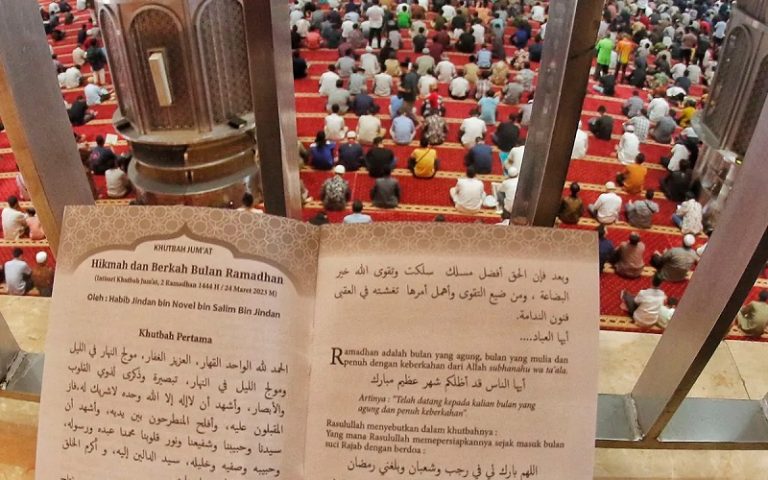 KHUTBAH JUM'AT
Hikmah dan Berkah Bulan Ramadhan
(Intisari Khutbah Jum'at, 2 Ramadhan 1444 H / 24 Maret 2023 M)
Oleh : Habib Jindan bin Novel bin Salim Bin Jindan
Khutbah Pertama
الحمد لله الواحد القهار، العزيز الغفار، مولج النهار في الليل
ومولج الليل في النهار، تبصيرة وذكرى لذوي القلوب
والأبصار، وأشهد أن لاإله إلا الله وحده لاشريك له، فاز
المقبلون عليه، وأفلح المنطرحون بين يديه، وأشهد أن
سيدنا وحبيبنا وشفيعنا ونور قلوبنا محمدا عبده ورسوله،
وحبيبه وصفيه وخليله، سيد الدالين إليه، و أكرم الخلق
وبعد فإن الحق أفضل مسلك سلكت وتقوى الله خير
البضاعة ، ومن ضيع التقوى وأهمل أمرها تغشته في العقبى
فنون الندامة.
أيها العباد....
Ramadhan adalah bulan yang agung, bulan yang mulia dan
penuh dengan keberkahan dari Allah subhanahu wa ta'ala.
أيها الناس قد أظلكم شهر عظيم مبارك
Artinya : "Telah datang kepada kalian bulan yang
agung dan penuh keberkahan".
Rasulullah menyebutkan dalam khutbahnya :
Yang mana Rasulullah memepersiapkannya sejak masuk bulan
suci Rajab dengan berdoa :
اللهم بارك لي في رجب وشعبان وبلغني رمضان